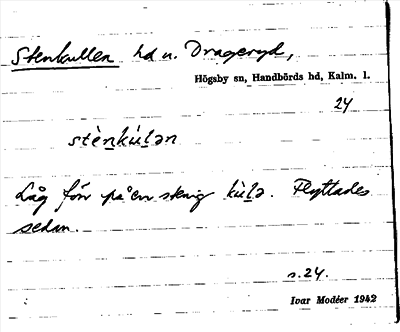 Stenkullen hd u. Drageryd,
Högsby sn, Handbörds hd, Kalm. l.
24
stènkùlən
Låg förr på en stenig kùlə. Flyttades
sedan.
s. 24.
Ivar Modéer 1942